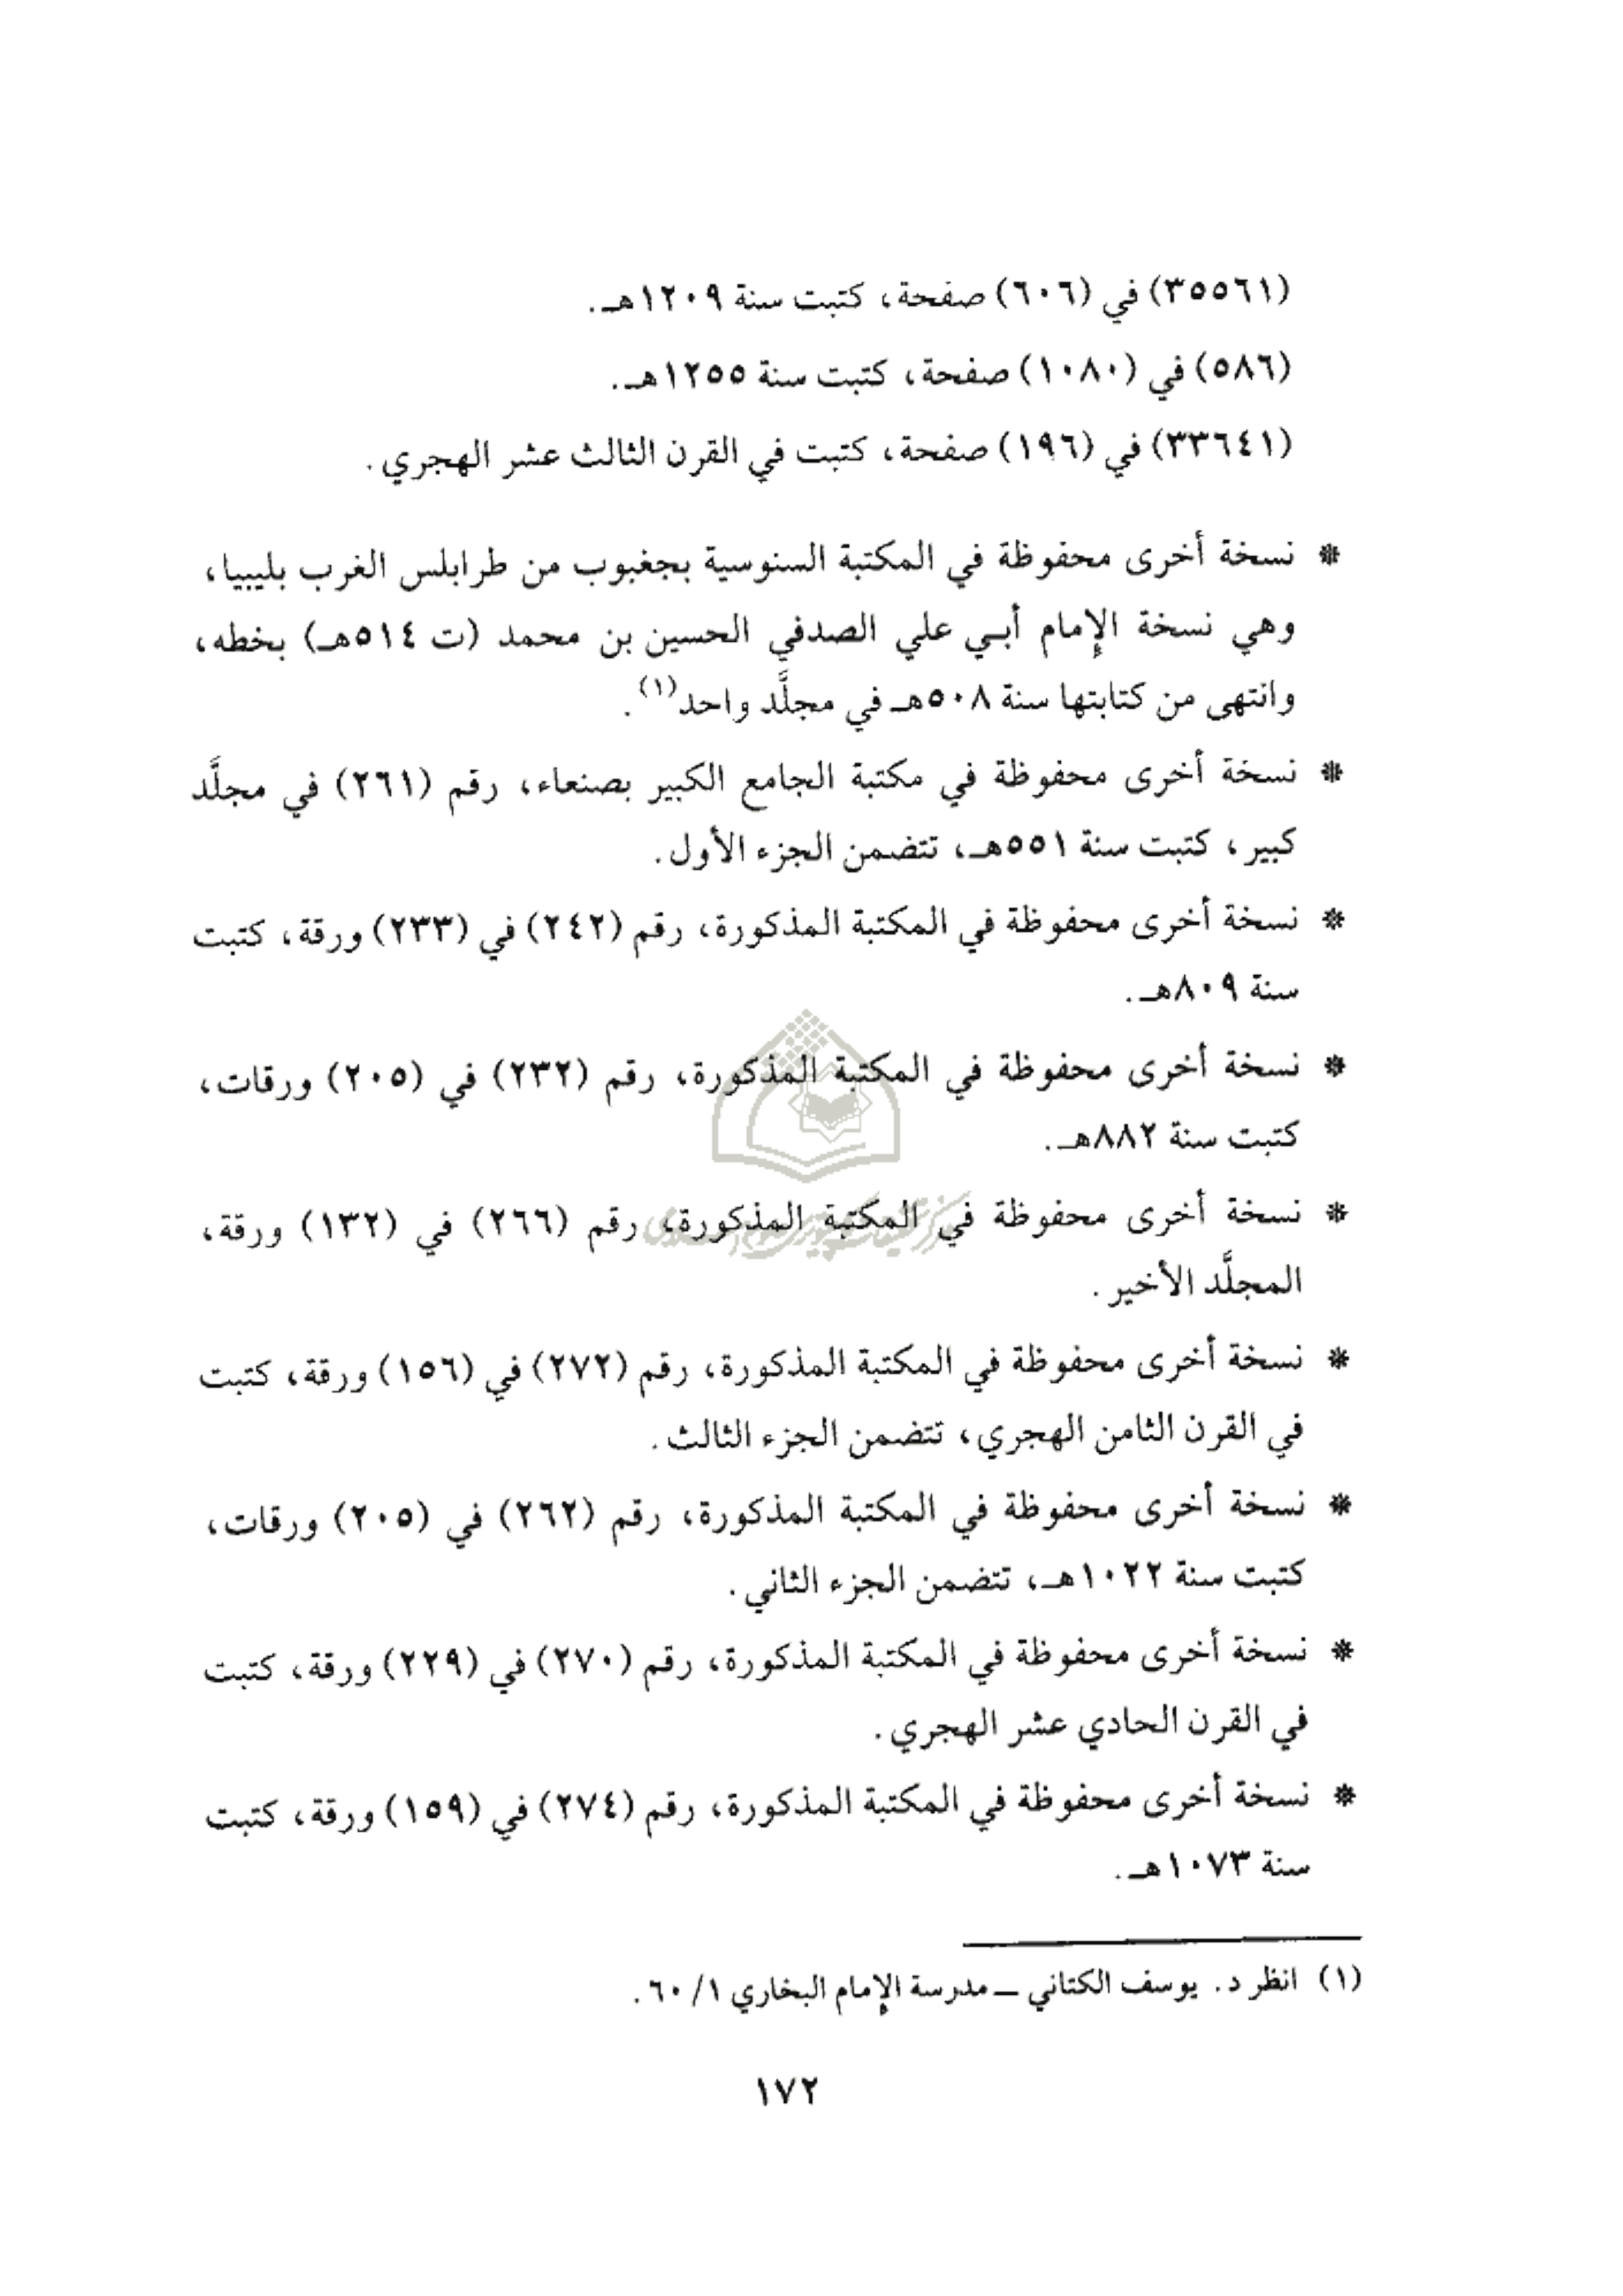 (٣٥٥٦١) في (٦٠٦) صفحة، كتبت سنة ١٢٠٩هـ.
(٥٨٦) في (١٠٨٠) صفحة، كتبت سنة ١٢٥٥هـ.
(٣٣٦٤١) في (١٩٦) صفحة، كتبت في القرن الثالث عشر الهجري.
* نسخة أخرى محفوظة في المكتبة السنوسية بجغبوب من طرابلس الغرب بليبيا،
وهي نسخة الإمام أبي علي الصدفي الحسين بن محمد (ت ٥١٤هـ) بخطه،
وانتهى من كتابتها سنة ٥٠٨هـ في مجلَّد واحد(١).
* نسخة أخرى محفوظة في مكتبة الجامع الكبير بصنعاء، رقم (٢٦١) في مجلَّد
كبير، كتبت سنة ٥٥١هـ، تتضمن الجزء الأول.
* نسخة أخرى محفوظة في المكتبة المذكورة، رقم (٢٤٢) في (٢٣٣) ورقة، كتبت
سنة ٨٠٩هـ.
* نسخة أخرى محفوظة في المكتبة المذكورة، رقم (٢٣٢) في (٢٠٥) ورقات،
كتبت سنة ٨٨٢هـ.
* نسخة أخرى محفوظة في المكتبة المذكورة، رقم (٢٦٦) في (١٣٢) ورقة،
المجلَّد الأخير.
* نسخة أخرى محفوظة في المكتبة المذكورة، رقم (٢٧٢) في (١٥٦) ورقة، كتبت
في القرن الثامن الهجري، تتضمن الجزء الثالث.
* نسخة أخرى محفوظة في المكتبة المذكورة، رقم (٢٦٢) في (٢٠٥) ورقات،
كتبت سنة ١٠٢٢هـ، تتضمن الجزء الثاني.
* نسخة أخرى محفوظة في المكتبة المذكورة، رقم (٢٧٠) في (٢٢٩) ورقة، كتبت
في القرن الحادي عشر الهجري.
* نسخة أخرى محفوظة في المكتبة المذكورة، رقم (٢٧٤) في (١٥٩) ورقة، كتبت
سنة ١٠٧٣هـ.
(١) انظر د. يوسف الكتاني ــ مدرسة الإمام البخاري ١/ ٦٠.
١٧٢